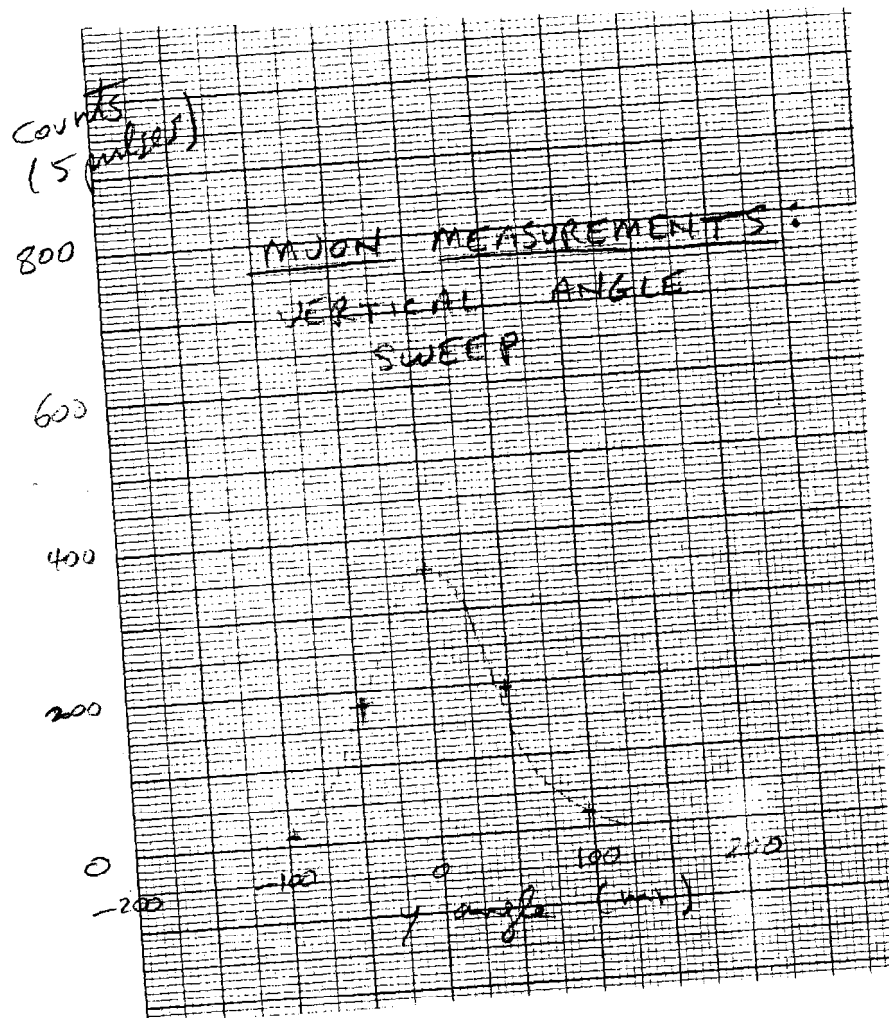 counts
(5 pulses)
MUON MEASUREMENTS:
VERTICAL ANGLE
SWEEP
800
600
400
200
0
-200 -100 0 100 200
y angle (mr)